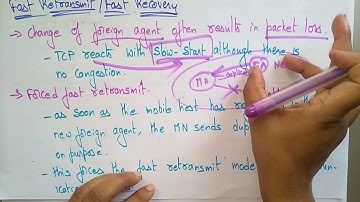 Fast Retransmit / Fast Recovery
→ Change of foreign agent often results in packet loss.
- TCP reacts with Slow-Start although there is
no congestion.
MN
FA
→ Forced fast retransmit.
- as soon as the mobile host has
new foreign agent, the MN sends
on purpose.
- this forces the fast retransmit mode